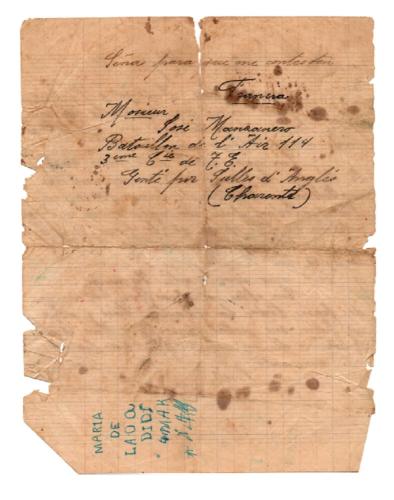 Señas para que me contesten
Francia
Mosieur
José Manzanero
Batallon de l'Air 114
3eme Cie de T. E.
Genté por Salles d'Anglés
(Charente)
MARIA
DE
LAOO
DIDI